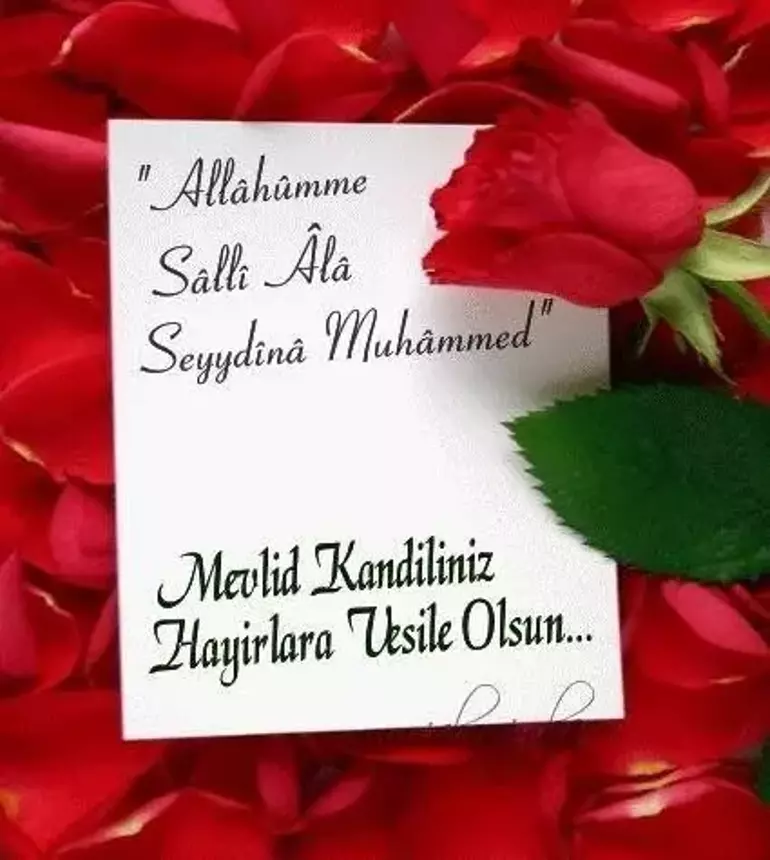 "Allâhûmme
Sâllî Âlâ
Seyydînâ Muhâmmed"
Mevlid Kandiliniz
Hayirlara Vesile Olsun...